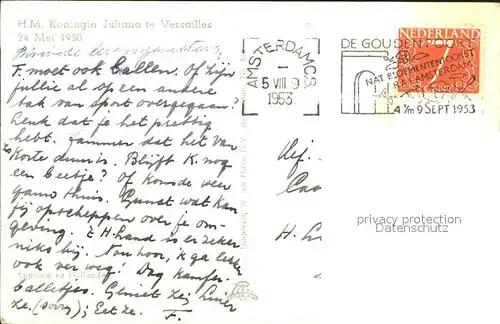 H.M. Koningin Juliana te Versailles
24 Mei 1950
F. moet ook Callen. Of zijn
jullie al op een andere
tak van sport overgegaan?
Denk dat je het prettig
hebt. Jammer dat het van
zo korte duur is. Blijft K. nog
een beetje? Of komde weer
gauw thuis. Gunst wat kan
jij opscheppen over je om-
geving. Z. H.land is er zeker
niks bij. Nou hoor, ik ga lekker
ook ver weg! Dag Kamfer
balletjes. Geniet zij,
ze. (sorry); Eet ze. F.
AMSTERDAM CS
5 VIII 9
1953
DE GOUDEN POORT
NAT BLOEMENTOONST
RAI AMSTERDAM
4 T/M 9 SEPT 1953
NEDERLAND
H. L
privacy protection
watermark